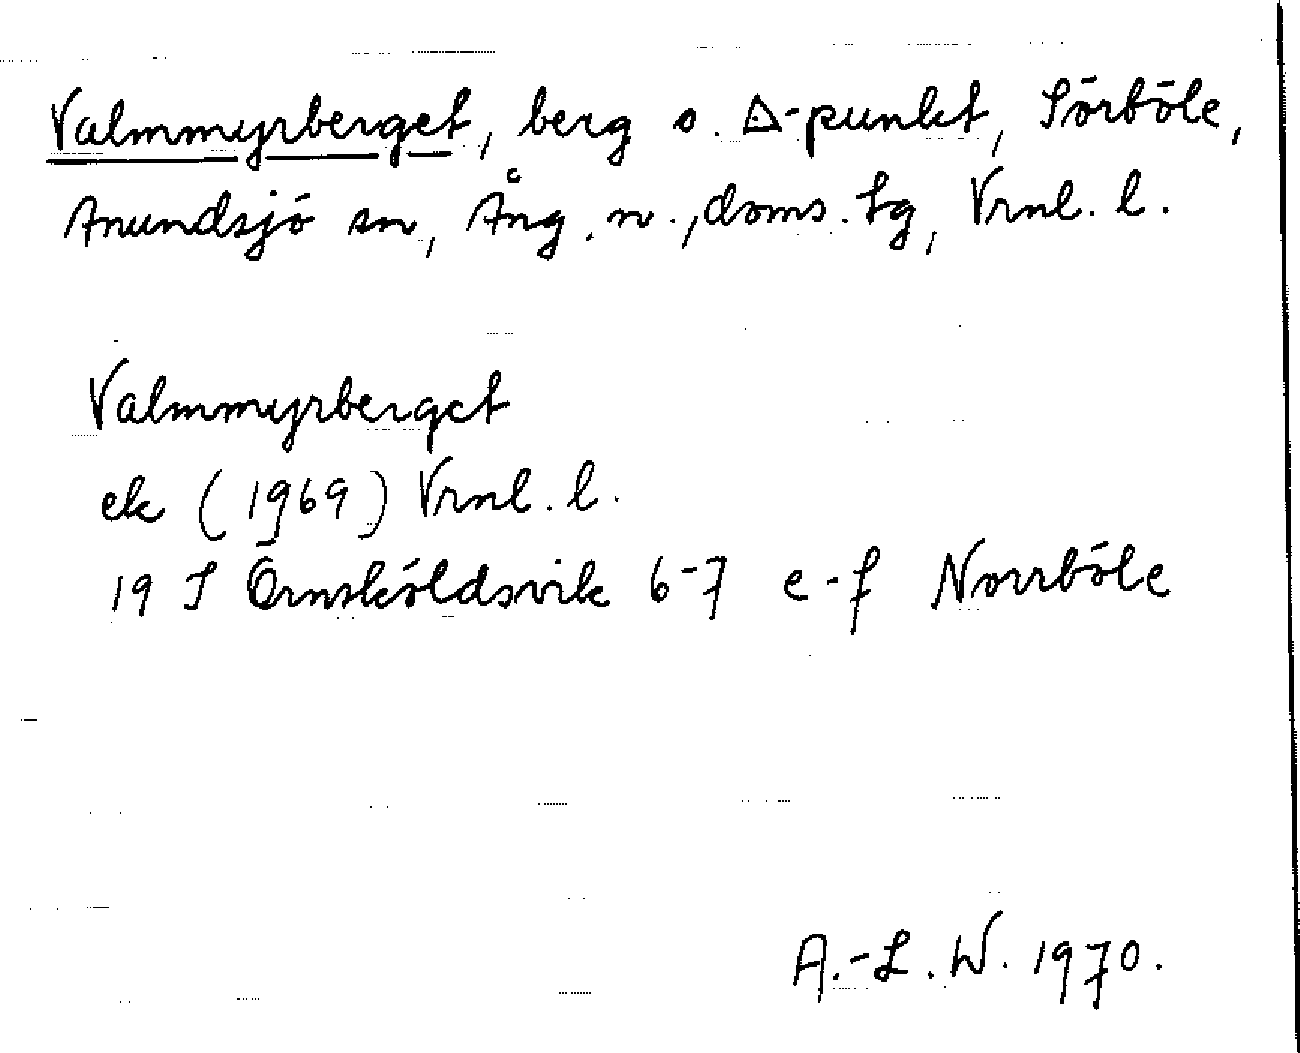 Valmmyrberget, berg o. Δ-punkt, Sörböle,
Anundsjö sn, Ång. n., doms. tg, Vrnl. l.
Valmmyrberget
ek (1969) Vrnl. l.
19 J Örnsköldsvik 6-7 e-f Norrböle
A.-L. W. 1970.